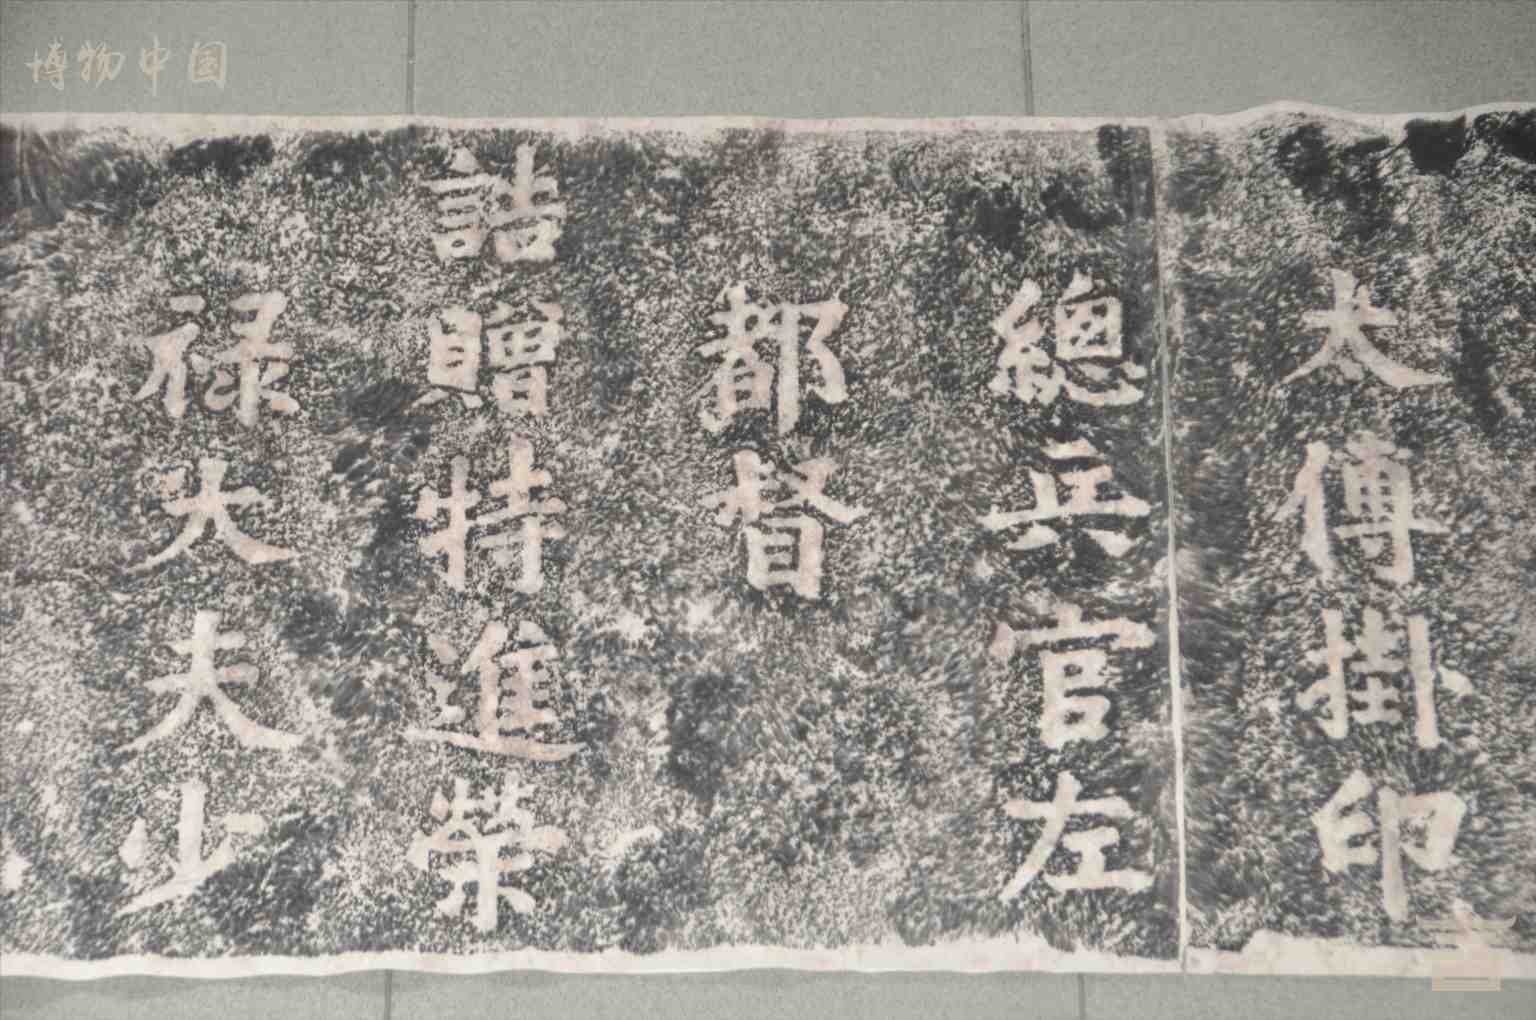 博物中国
太傅掛印
總兵官左
都督
誥贈特進榮
禄大夫少